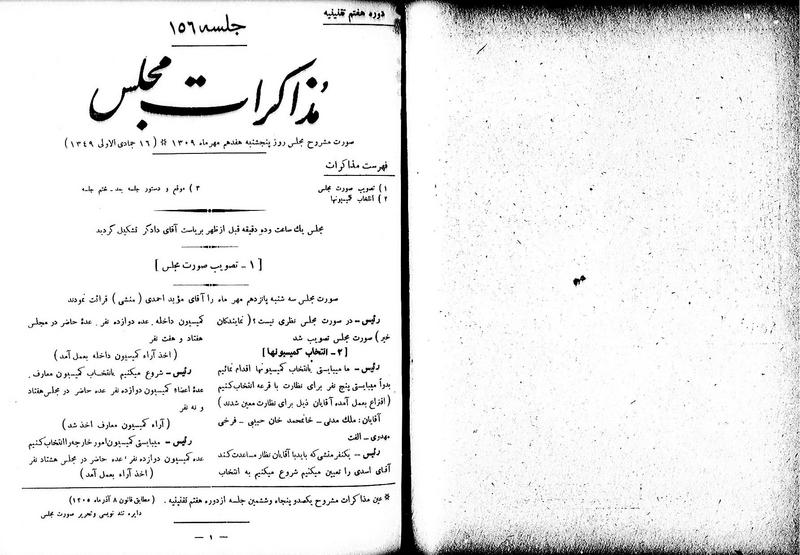 دوره هفتم تقنینیه
جلسه ۱۵۶
مذاکرات مجلس
صورت مشروح مجلس روز پنجشنبه هفدهم مهرماه ۱۳۰۹ * ( ۱۶ جمادی الاولی ۱۳۴۹ )
فهرست مذاکرات
۱) تصویب صورت مجلس
۲) انتخاب کمیسیونها
۳) موقع و دستور جلسه بعد - ختم جلسه
مجلس یك ساعت و دو دقیقه قبل از ظهر بریاست آقای دادگر تشکیل گردید
[ ۱ - تصویب صورت مجلس ]
صورت مجلس سه شنبه پانزدهم مهر ماه را آقای مؤید احمدی ( منشی ) قرائت نمودند
رئیس - در صورت مجلس نظری نیست؟ ( نمایندگان
خیر ) صورت مجلس تصویب شد
[ ۲ - انتخاب کمیسیونها ]
رئیس - ما میبایستی بانتخاب کمیسیونها اقدام نمائیم
بدواً میبایستی پنج نفر برای نظارت با قرعه انتخاب کنیم
( اقتراع بعمل آمده آقایان ذیل برای نظارت معین شدند )
آقایان : ملك مدنی - خانمحمد خان حبیبی - فرخی
مهدوی - الفت
رئیس - یکنفر منشی که باید با آقایان نظار مساعدت کند
آقای اسدی را تعیین میکنیم شروع میکنیم به انتخاب
کمیسیون داخله. عده دوازده نفر. عدهٔ حاضر در مجلس
هفتاد و هفت نفر
( اخذ آراء کمیسیون داخله بعمل آمد )
رئیس - شروع میکنیم بانتخاب کمیسیون معارف.
عدهٔ اعضاء کمیسیون دوازده نفر عده حاضر در مجلس هفتاد
و نه نفر
( آراء کمیسیون معارف اخذ شد )
رئیس - میبایستی کمیسیون امور خارجه را انتخاب کنیم
عده کمیسیون دوازده نفر، عده حاضر در مجلس هشتاد نفر
( اخذ آراء بعمل آمد )
* عین مذاکرات مشروح یکصدو پنجاه وششمین جلسه از دوره هفتم تقنینیه . ( مطابق قانون ۸ آذرماه ۱۳۰۵ )
دایره تند نویسی وتحریر صورت مجلس
— ۱ —